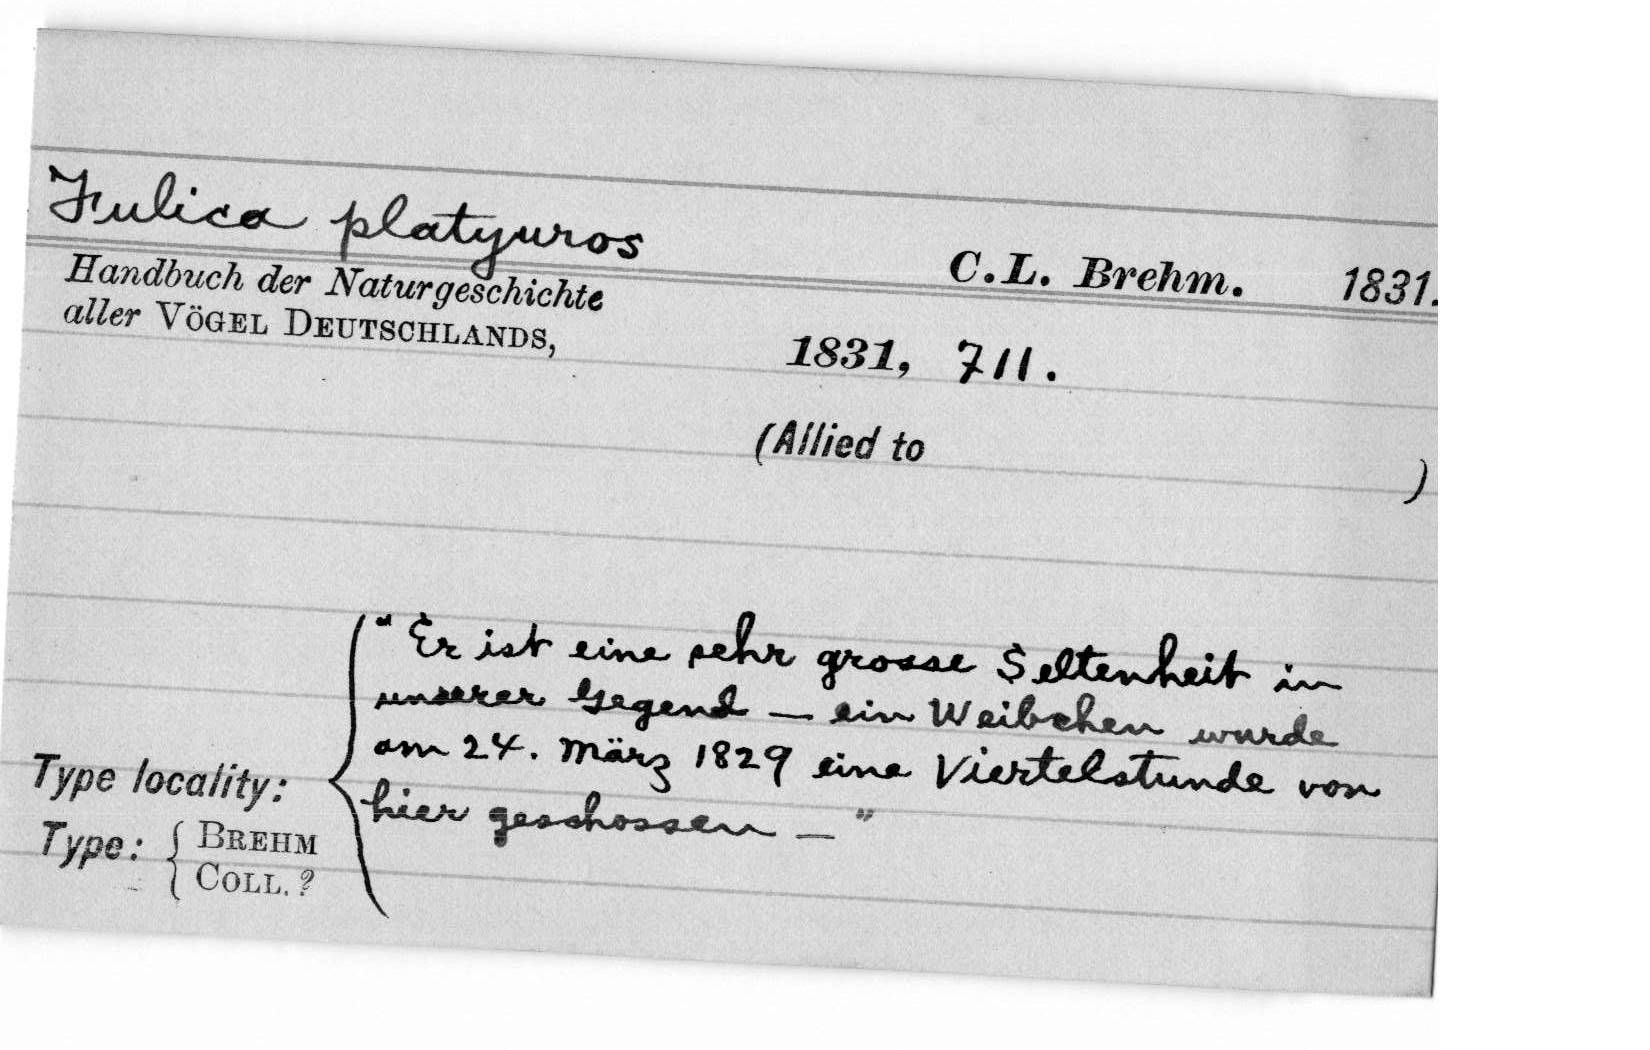 Fulica platyuros
C.L. Brehm. 1831.
Handbuch der Naturgeschichte
aller VÖGEL DEUTSCHLANDS,
1831, 711.
(Allied to )
" Er ist eine sehr grosse Seltenheit in
unserer Gegend — ein Weibchen wurde
am 24. März 1829 eine Viertelstunde von
hier geschossen — "
Type locality:
Type: { BREHM
COLL. ?